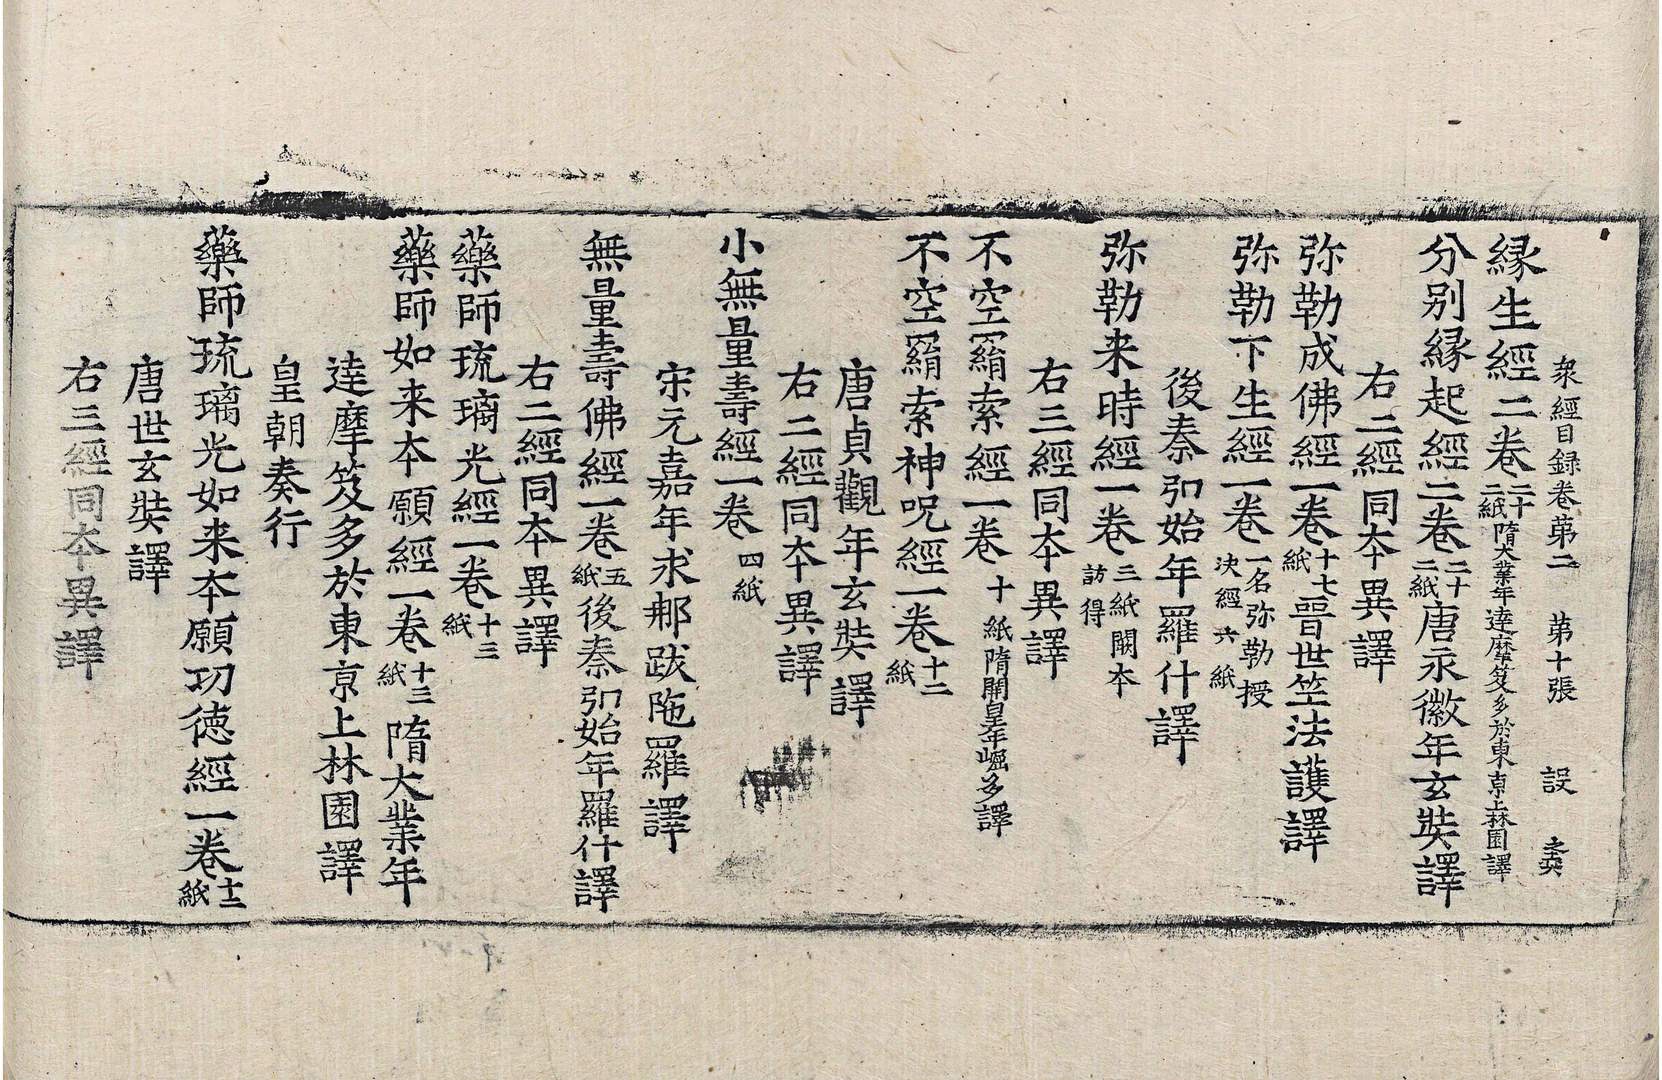 衆經目録卷苐二 第十張 設
縁生經二卷二十二紙隋大業年達摩笈多於東京上林園譯
分别縁起經二卷二十二紙唐永徽年玄奘譯
右二經同本異譯
弥勒成佛經一卷十七紙晉世竺法護譯
弥勒下生經一卷一名弥勒授决經六紙
後秦弘始年羅什譯
弥勒来時經一卷三紙闕本訪得
右三經同本異譯
不空羂索經一卷十紙隋開皇年崛多譯
不空羂索神呪經一卷十二紙
唐貞觀年玄奘譯
右二經同本異譯
小無量壽經一卷四紙
宋元嘉年求那跋陁羅譯
無量壽佛經一卷五紙後秦弘始年羅什譯
右二經同本異譯
藥師琉璃光經一卷十三紙
藥師如来本願經一卷十三紙隋大業年
達摩笈多於東京上林園譯
皇朝奏行
藥師琉璃光如来本願功德經一卷十二紙
唐世玄奘譯
右三經同本異譯